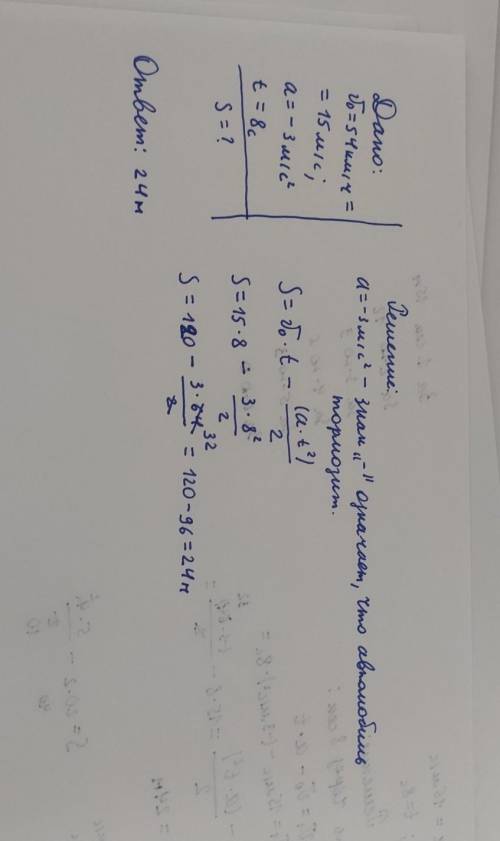 Дано:
v₀ = 54 км/ч =
= 15 м/с;
a = -3 м/с²
t = 8с
S = ?
Решение:
a = -3 м/с² - знак „-" означает, что автомобиль
тормозит.
S = v₀ · t - (a · t²) / 2
S = 15 · 8 - 3 · 8² / 2
S = 120 - 3 · 64 32 / 2 = 120 - 96 = 24 м
Ответ: 24 м